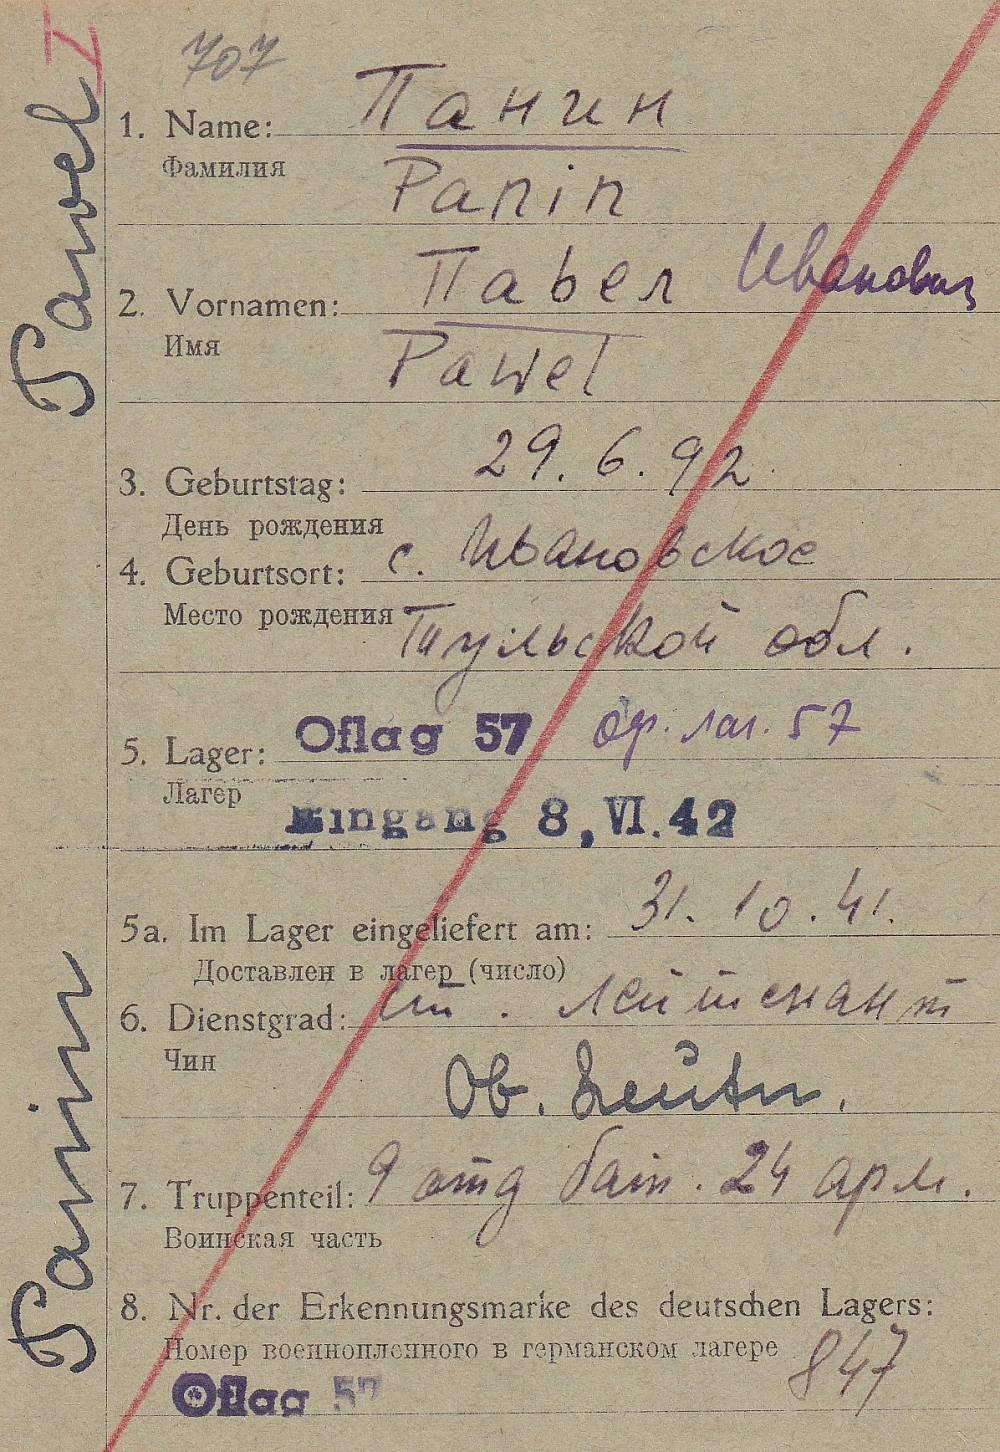 I
707
1. Name: Панин
Фамилия
Panin
2. Vornamen: Павел Иванович
Имя
Pawel
3. Geburtstag: 29.6.92
День рождения
4. Geburtsort: с. Ивановское
Место рождения Тульской обл.
5. Lager: Oflag 57 оф. лаг. 57
Лагер
Eingang 8, VI. 42
5a. Im Lager eingeliefert am: 31.10.41.
Доставлен в лагер (число)
6. Dienstgrad: ст. лейтенант
Чин
Ob. Leutn.
7. Truppenteil: 9 отд бат. 24 арм.
Воинская часть
8. Nr. der Erkennungsmarke des deutschen Lagers:
Номер военнопленного в германском лагере 847
Oflag 57
Panin Pawel